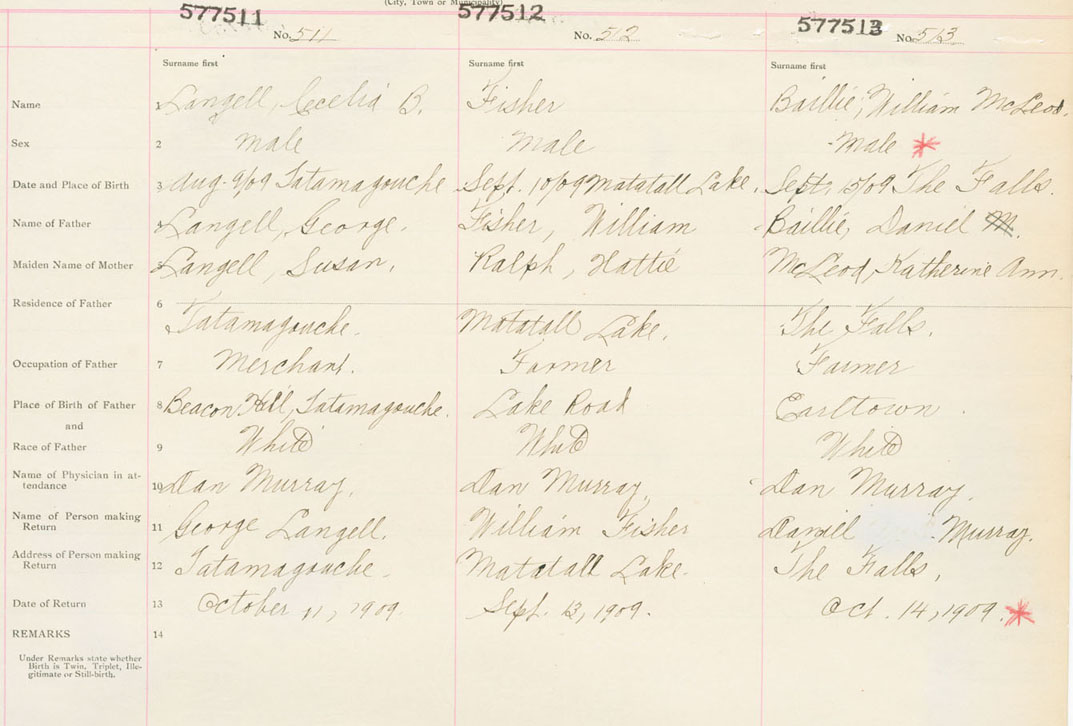 (City, Town or Municipality)
577511 577512 577513
No. 511 No. 512 No. 513
Surname first Surname first Surname first
Name 1 Langell, Cecelia B. Fisher Baillie, William McLeod.
Sex 2 male Male Male *
Date and Place of Birth 3 Aug. 9/09 Tatamagouche Sept. 10/09 Matatall Lake. Sept. 15/09 The Falls.
Name of Father 4 Langell, George. Fisher, William Baillie, Daniel M.
Maiden Name of Mother 5 Langell, Susan. Ralph, Hattie McLeod, Katherine Ann.
Residence of Father 6 Tatamagouche. Matatall Lake. The Falls.
Occupation of Father 7 Merchant. Farmer Farmer
Place of Birth of Father 8 Beacon Hill, Tatamagouche. Lake Road Earltown.
and
Race of Father 9 White White White
Name of Physician in at-
tendance 10 Dan Murray. Dan Murray. Dan Murray.
Name of Person making
Return 11 George Langell. William Fisher Daniel Murray.
Address of Person making
Return 12 Tatamagouche. Matatall Lake. The Falls,
Date of Return 13 October 11, 1909. Sept. 13, 1909. Oct. 14, 1909. *
REMARKS 14
Under Remarks state whether
Birth is Twin, Triplet, Ille-
gitimate or Still-birth.